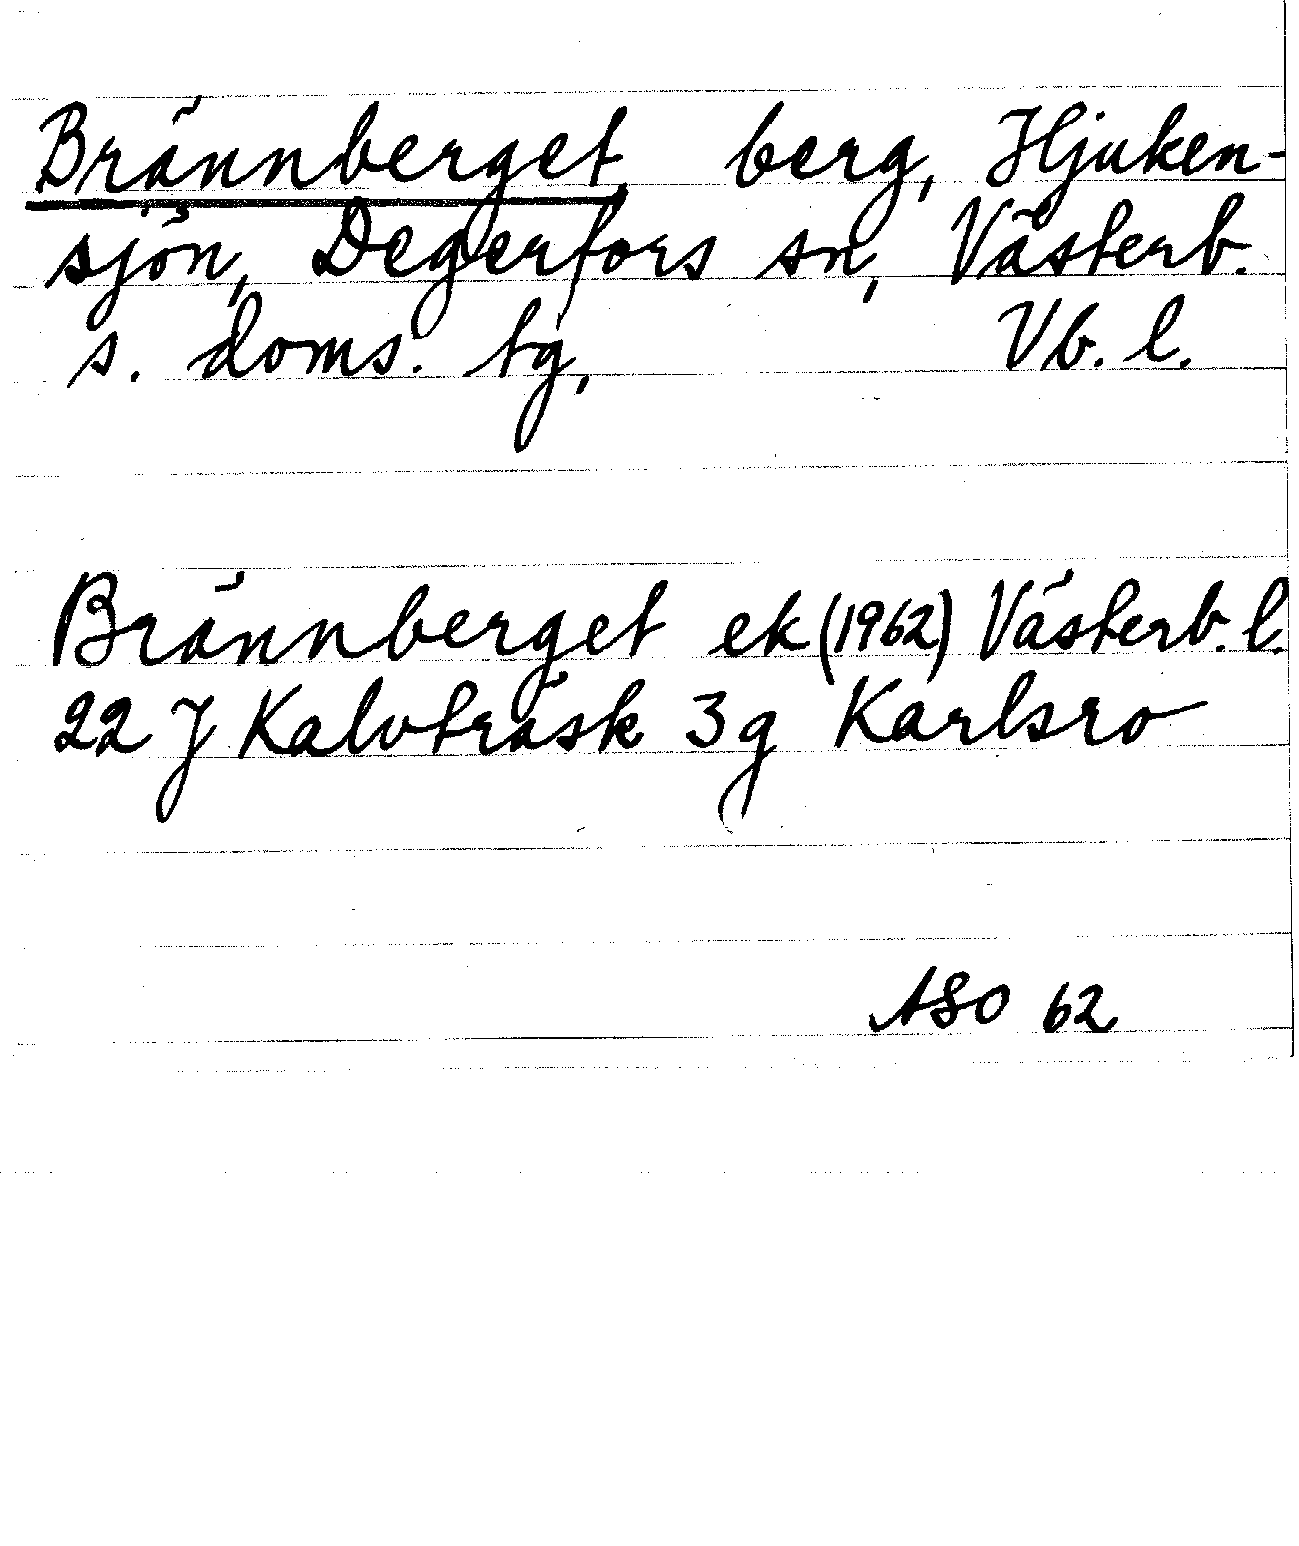 Brännberget, berg, Hjuken-
sjön, Degerfors sn, Västerb.
s. doms. tg, Vb. l.
Brännberget ek (1962) Västerb. l.
22 J Kalvträsk 3g Karlsro
ASO 62